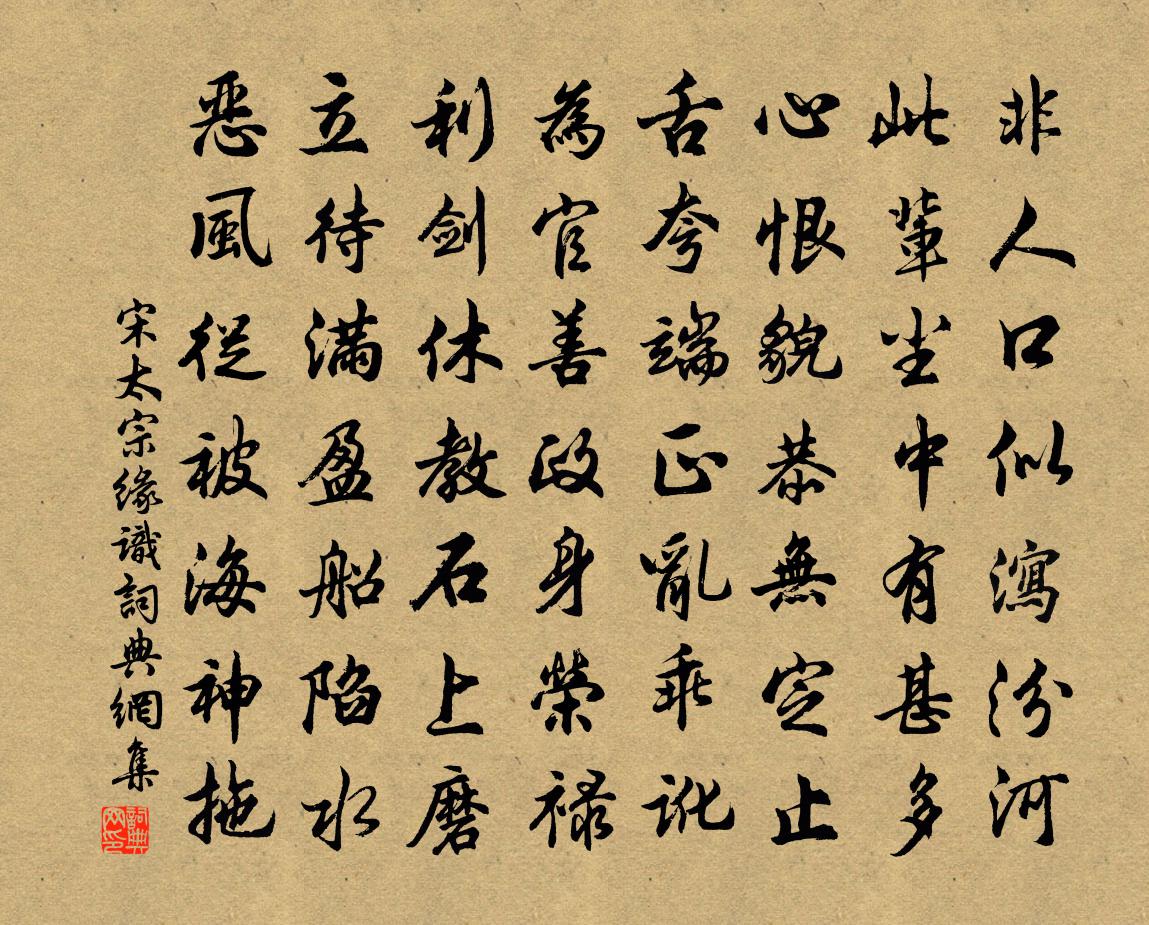 非人口似瀉汾河
此輩坐中有甚多
心恨貌恭無定止
舌夸端正亂乖訛
為官善政身榮祿
利劍休教石上磨
立待滿盈船陷水
惡風從被海神拖
宋太宗緣識詞典網集
詞典网印